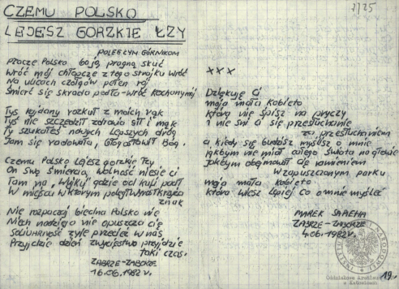 CZEMU POLSKO
LEJESZ GORZKIE ŁZY
POLEGŁYM GÓRNIKOM
Proczę Polsko bają pragną skuć
Wróć mój chłopcze z tego strajku wróć
Na ulicach czołgów pełno rój
Śmierć się skrada podła-wróć kochany mój
Tyś kajdany rozkuł z moich rąk
Tyś nie szczędził zdrowia sił i mąk
Ty szukałeś nowych lepszych dróg
Jam się radowała, błogosławił Bóg.
Czemu Polsko lejesz gorzkie łzy
On swą śmiercią wolność niesie ci
Tam na „Wujku" gdzie od kul padł
W miejscu w którym poległ
znak
Nie rozpaczaj biedna Polsko nie
Niech nadzieja nie opuszcza cię
Solidarność żyje przecież w nas
Przyjdzie dzień zwycięstwa przyjdzie
taki czas.
ZABRZE-ZABORZE
16.06.1982r.
2/25
xxx
Dziękuję Ci
moja mała kobieto
która nie śpisz na pryczy
i nie śni ci się przesłuchanie
za przesłuchaniem
a kiedy się budzisz myślisz o mnie
jakbym nie miał całego świata na głowie
jakbym dogasał się promieniem
w zapuszczonym parku
moja mała kobieto
która wiesz lepiej co o mnie myśleć
MAREK
ZABRZE-ZABORZE
4.06.1982r.
19.